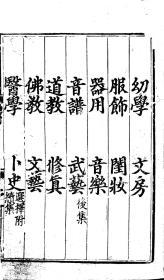 幼學　文房
服飾　閨妝
器用　音樂
音譜　武藝後集
道教　修真
佛教　文藝
醫學　卜史選擇附續集